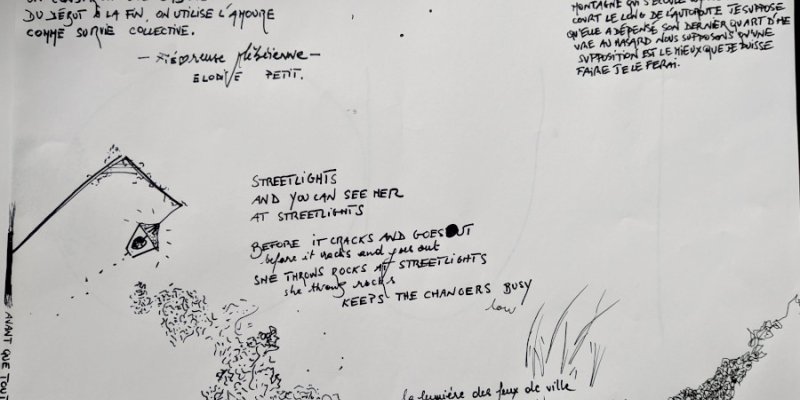 DU DÉBUT À LA FIN, ON UTILISE L'AMOUR
COMME SURVIE COLLECTIVE.
ELODIE PETIT.
COURT LE LONG DE L'AUTOROUTE JE SUPPOSE
QU'ELLE A DÉPENSÉ SON DERNIER QUART D'HE
URE AU HASARD NOUS SUPPOSONS QU'UNE
SUPPOSITION EST LE MIEUX QUE JE PUISSE
FAIRE JE LE FERAI.
STREETLIGHTS
AND YOU CAN SEE HER
AT STREETLIGHTS
BEFORE IT CRACKS AND GOES OUT
before it cracks and goes out
SHE THROWS ROCKS AT STREETLIGHTS
she throws rocks
KEEPS THE CHANGERS BUSY
low
AVANT QUE TOUT
la lumière des feux de ville